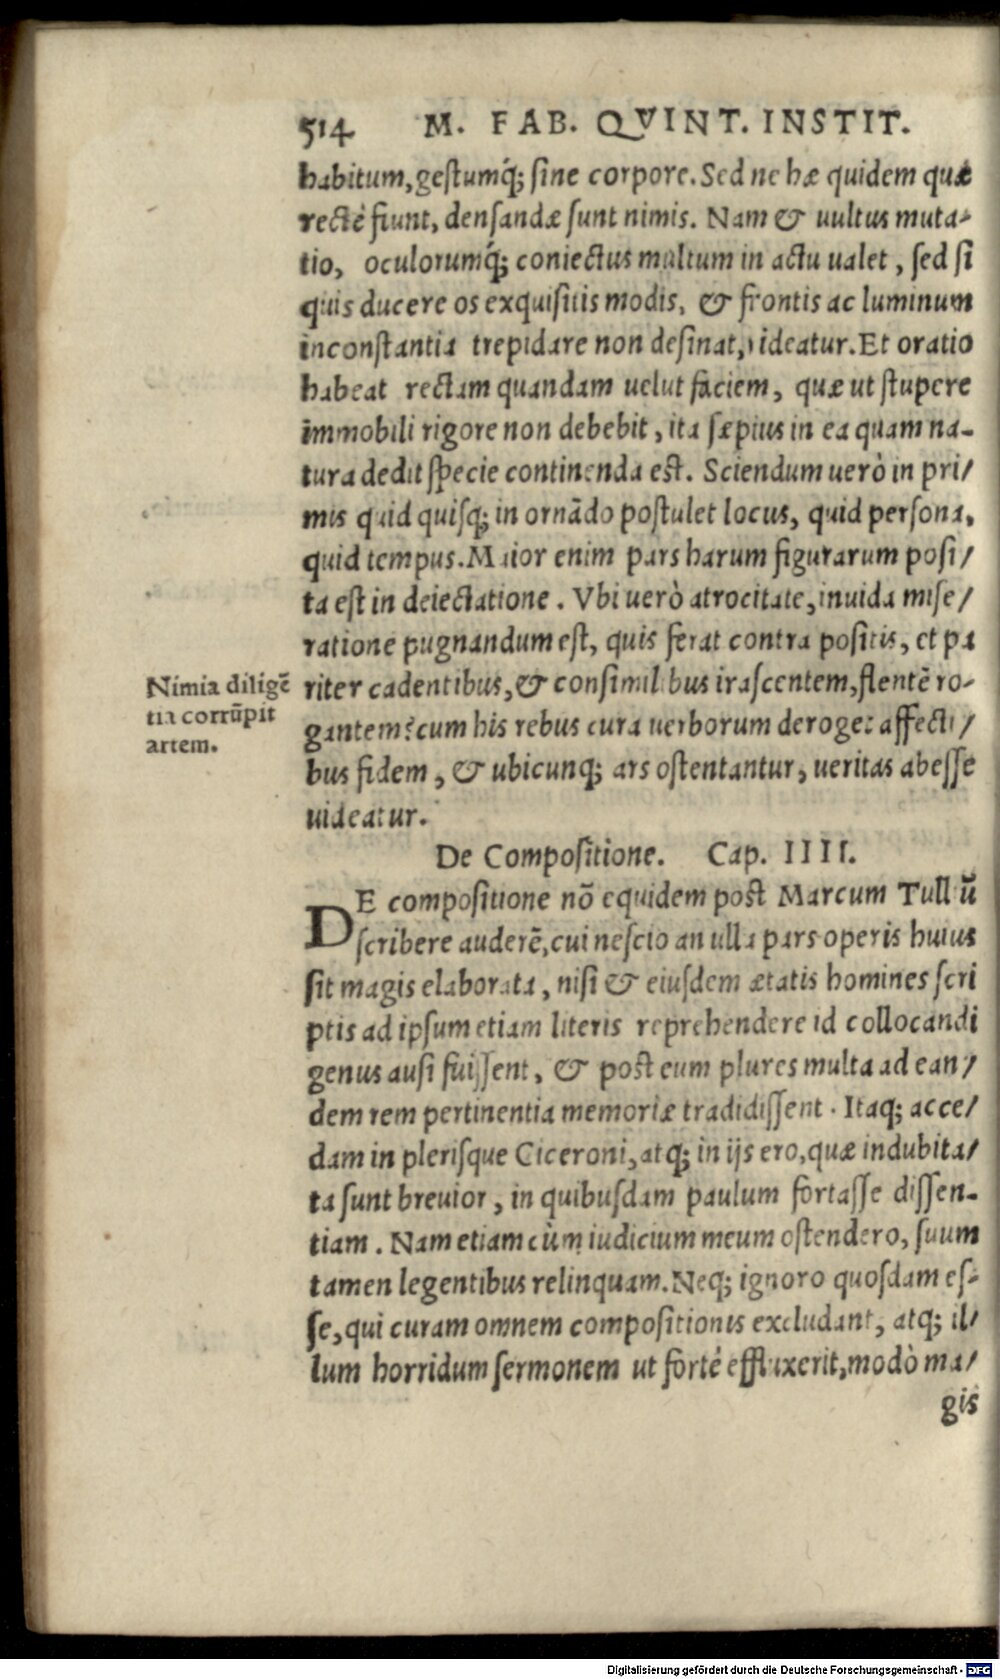 514 M. FAB. QVINT. INSTIT.
habitum, gestumq́; sine corpore. Sed ne hæ quidem quæ
rectè fiunt, densandæ sunt nimis. Nam & uultus muta-
tio, oculorumq́; coniectus multum in actu ualet, sed si
quis ducere os exquisitis modis, & frontis ac luminum
inconstantia trepidare non desinat, rideatur. Et oratio
habeat rectam quandam uelut faciem, quæ ut stupere
immobili rigore non debebit, ita sæpius in ea quam na-
tura dedit specie continenda est. Sciendum uerò in pri/
mis quid quisq; in ornādo postulet locus, quid persona,
quid tempus. Maior enim pars harum figurarum posi/
ta est in delectatione. Vbi uerò atrocitate, inuida mise/
ratione pugnandum est, quis ferat contra positis, et pa
Nimia diligē
tia corrūpit
artem.
riter cadentibus, & consimilibus irascentem, flentē ro-
gantem? cum his rebus cura uerborum deroget affecti/
bus fidem, & ubicunq; ars ostentantur, ueritas abesse
uideatur.
De Compositione. Cap. IIII.
DE compositione nō equidem post Marcum Tulliū
scribere auderē, cui nescio an ulla pars operis huius
sit magis elaborata, nisi & eiusdem ætatis homines scri
ptis ad ipsum etiam literis reprehendere id collocandi
genus ausi fuissent, & post eum plures multa ad ean/
dem rem pertinentia memoriæ tradidissent. Itaq; acce/
dam in plerisque Ciceroni, atq; in ijs ero, quæ indubita/
ta sunt breuior, in quibusdam paulum fortasse dissen-
tiam. Nam etiam cùm iudicium meum ostendero, suum
tamen legentibus relinquam. Neq; ignoro quosdam es-
se, qui curam omnem compositionis excludant, atq; il/
lum horridum sermonem ut fortè effluxerit, modò ma/
gis
Digitalisierung gefördert durch die Deutsche Forschungsgemeinschaft - DFG